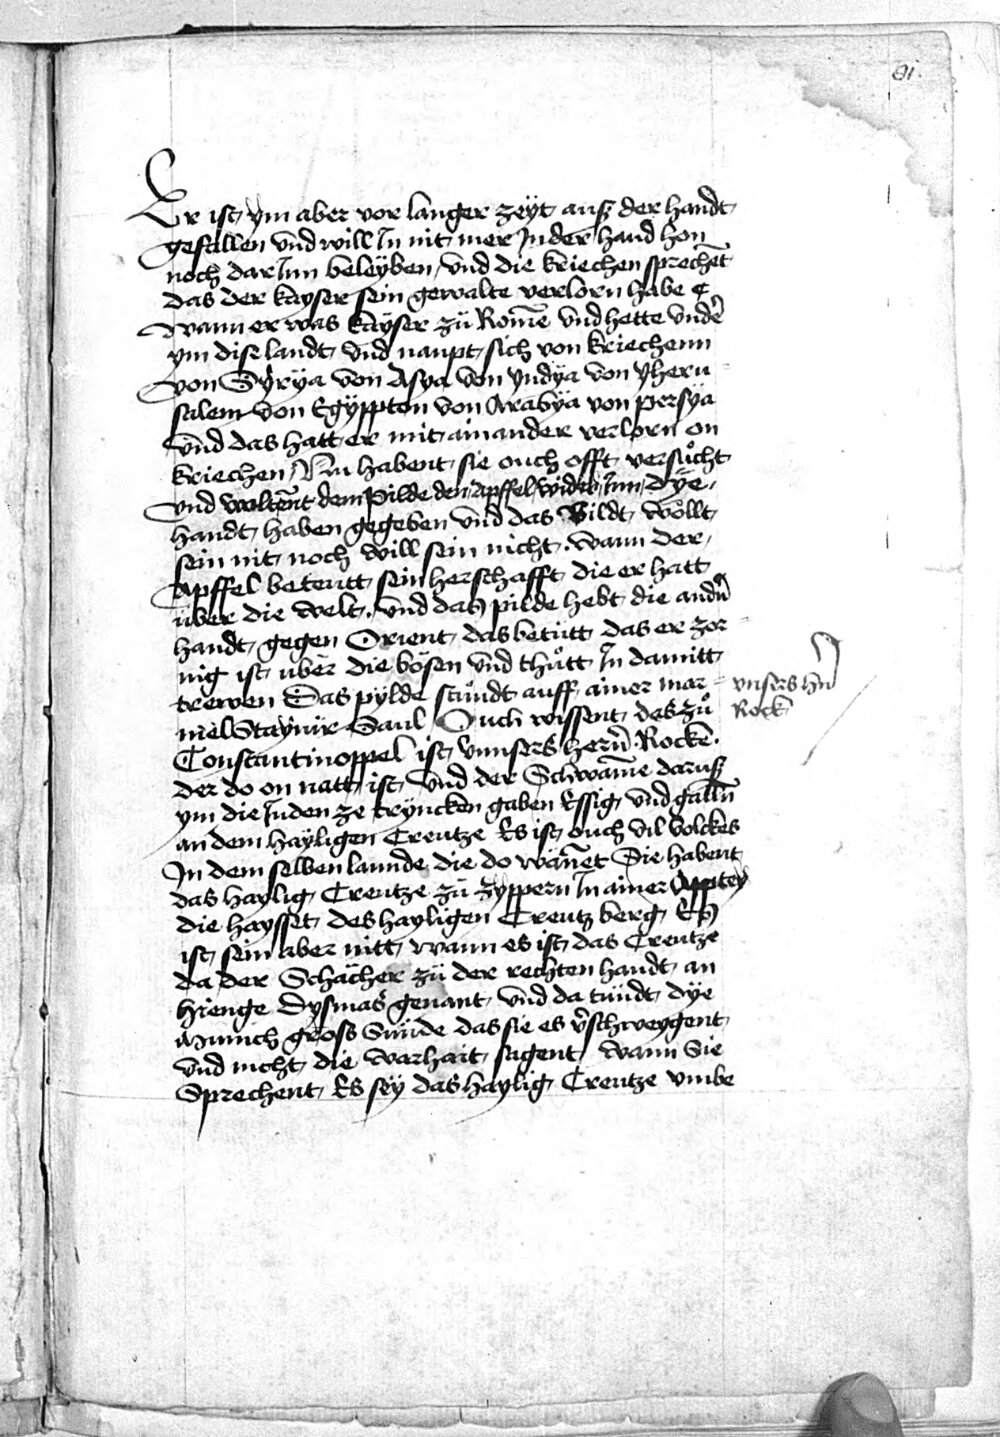 81
Er ist ym aber vor langer zeÿt auß der handt
gefallen vnd will In nit mer In der hand hon
noch dar Inn beleÿben / vnd die kriechen sprechēt
das der kayser sein gewalte verlorn habe
wann er was kaÿser zů Rome vnd hette vnder
ym dise landt vnd nanpt sich von kriechenn
von Sÿrÿa von Asya von yndÿa von yheru
salem von Egÿppten von Arabÿa von persÿa
vnd das hatt er mit ainander verlorn on
kriechen / Nu habent sie ouch offt versůcht
vnd woltent dem pilde den Apffel wider Inn dÿe
handt haben gegeben vnd das Bildt wöllt
sein nit noch will sein nicht . wann der
Apffel beteutt sein herschafft die er hatt
über die welt . vnd das pilde hebt die andn̄
handt gegen Orient das betütt das er zor
nig ist über die bösen vnd thůtt In damitt
trewen Das pÿlde stůndt auff ainer mar
mel Staynir Saul Ouch wissent das zů
vnsers hn̄
Rock
Constantinoppel ist vnnsers hern̄ Rocke .
der do on natt ist vnd der Schwam̄e daruß
ym die Juden ze trÿncken gaben Essig vnd galln̄
an dem haÿligen Creutze Es ist ouch vil volckes
In dem selben lannde die do wänet Sie habent
das haylig Creutze zů zÿppern In ainer Apptey
die haÿsset des hayligen Creutz berg Es
ist sein aber nitt wann es ist das Creutze
da der Schächer zů der rechten handt an
hienge Dysmas genant vnd da tündt dÿe
Münich gross Sünde das sie es v̄schweÿgent
vnd nicht die warhait sagent wann Sie
Sprechent Es seÿ das haylig Creutze vmbe